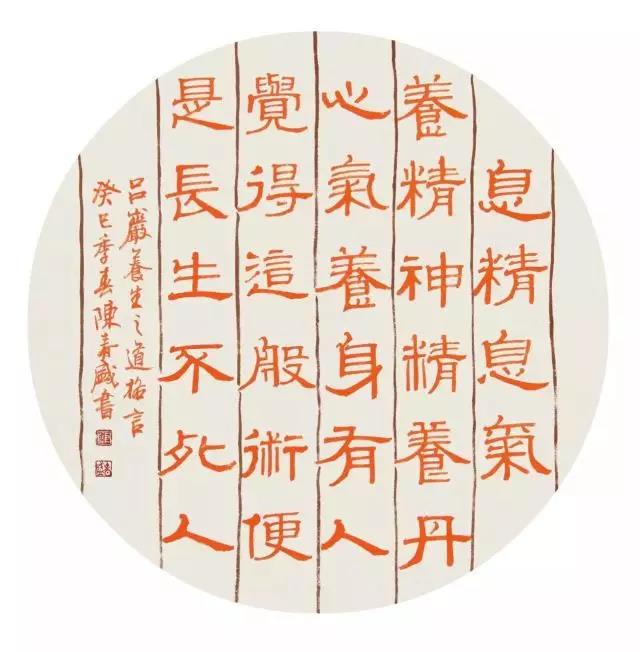 息精息氣
養精神精養丹
心氣養身有人
覺得這般術便
是長生不死人
呂巖養生之道格言
癸巳季春陳盛書